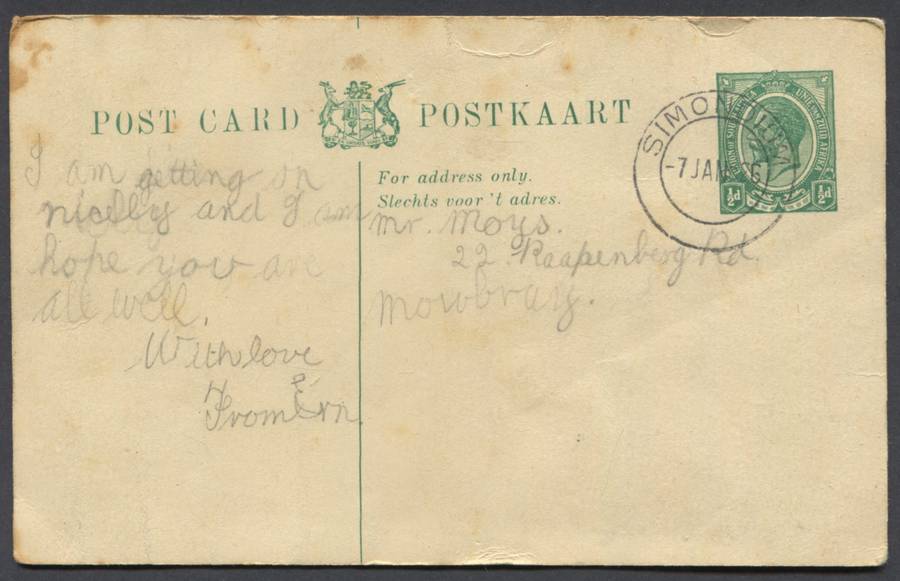 POST CARD POSTKAART
UNION OF SOUTH AFRICA UNIE VAN ZUID AFRIKA
½d ½d
SIMON
-7 JAN 26
For address only.
Slechts voor 't adres.
I am getting on
nicely and I am
hope you are
all well.
With love
From Ern.
Mr. Moys.
22. Raapenberg Rd.
Mowbray.